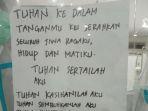 TUHAN KE DALAM
TANGANMU KU SERAHKAN
SELURUH JIWA RAGAKU,
HIDUP DAN MATIKU.
TUHAN SERTAILAH
AKU
TUHAN KASIHANILAH AKU
TUHAN SEMBUHKANLAH AKU